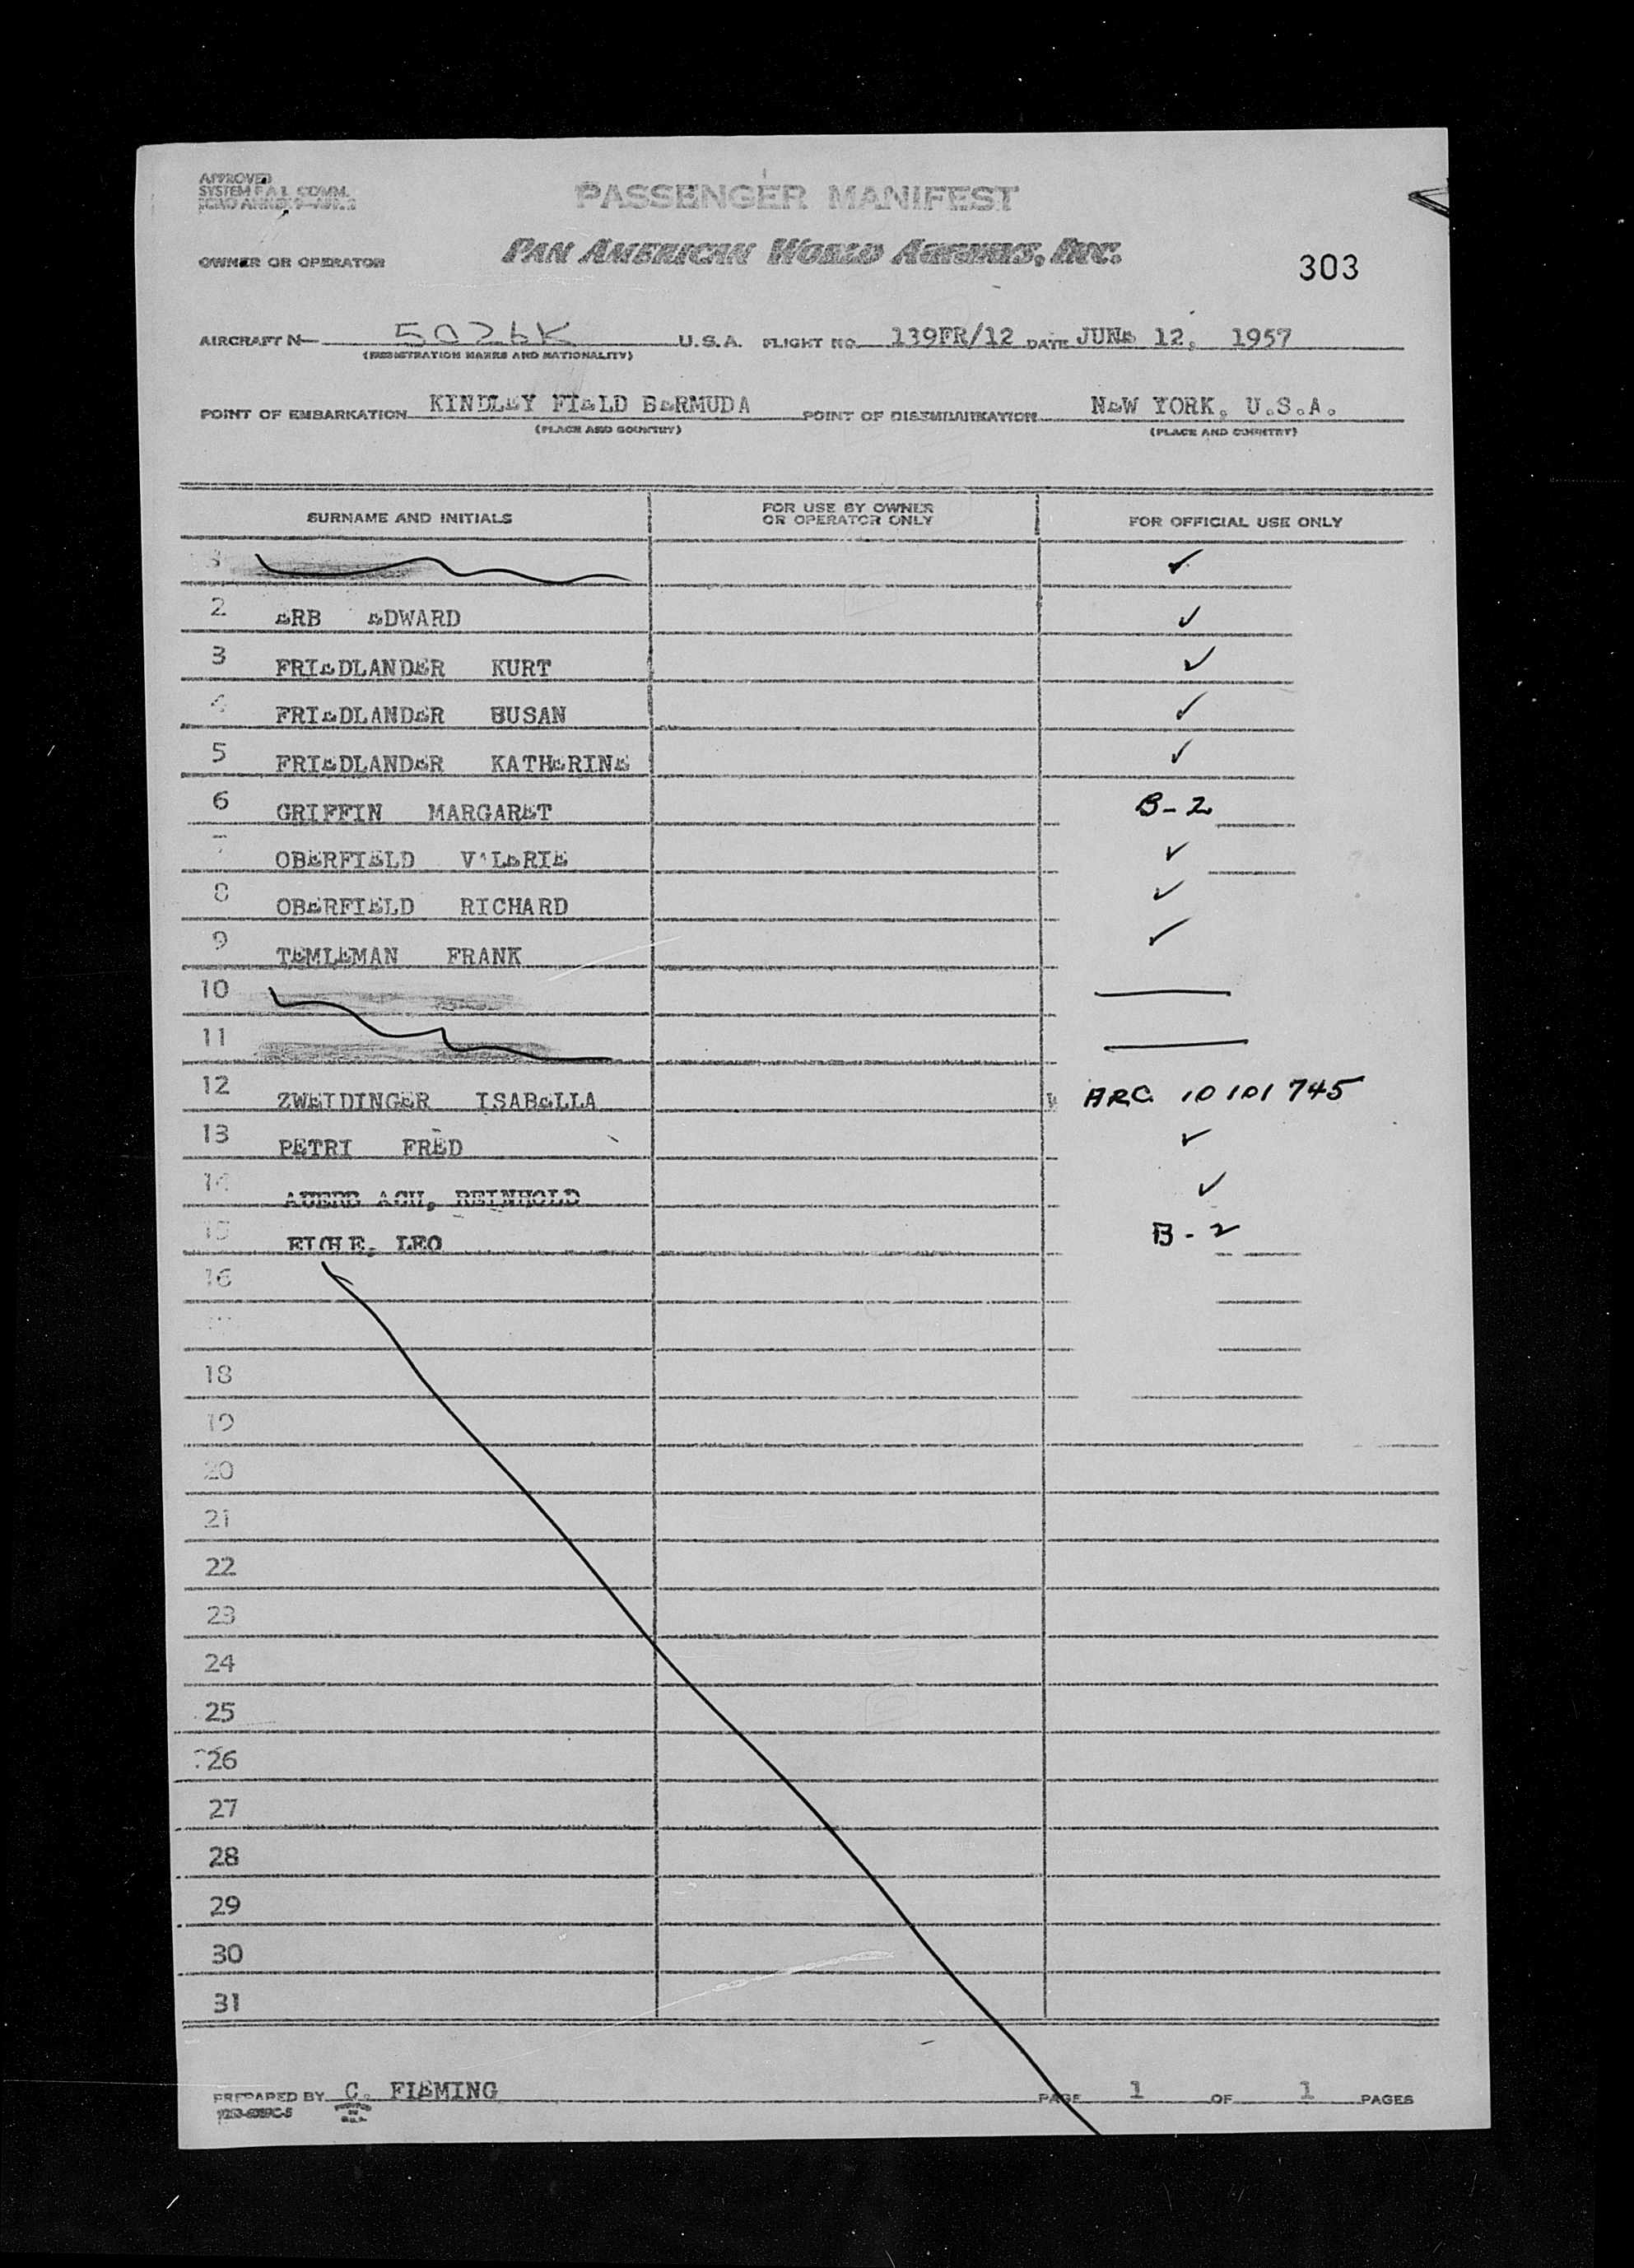 APPROVED
SYSTEM F.A.L. COMM.
PASSENGER MANIFEST
OWNER OR OPERATOR
PAN AMERICAN WORLD AIRWAYS, INC.
303
AIRCRAFT N- 5026K U.S.A. FLIGHT NO. 139FR/12 DATE JUNE 12, 1957
(REGISTRATION MARKS AND NATIONALITY)
POINT OF EMBARKATION KINDLEY FIELD BERMUDA POINT OF DISEMBARKATION NEW YORK, U.S.A.
(PLACE AND COUNTRY) (PLACE AND COUNTRY)
SURNAME AND INITIALS FOR USE BY OWNER OR OPERATOR ONLY FOR OFFICIAL USE ONLY
✓
2 ERB EDWARD ✓
3 FRIEDLANDER KURT ✓
4 FRIEDLANDER SUSAN ✓
5 FRIEDLANDER KATHERINE ✓
6 GRIFFIN MARGARET B-2
7 OBERFIELD VALERIE ✓
8 OBERFIELD RICHARD ✓
9 TEMLEMAN FRANK ✓
10
11
12 ZWEIDINGER ISABELLA ARC 10101745
13 PETRI FRED ✓
14 AUERBACH, REINHOLD ✓
15 EICHE, LEO B-2
16
18
19
20
21
22
23
24
25
26
27
28
29
30
31
PREPARED BY C. FLEMING PAGE 1 OF 1 PAGES